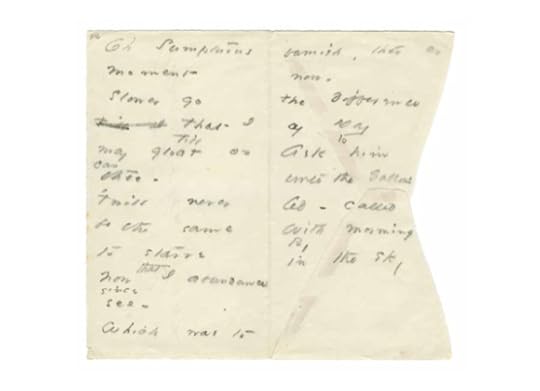 Oh Sumptuous
moment
Slower go
till I that I
Till
may gloat on
can
thee -
'twill never
be the same
to starve
now that I abundance
since
see -
Which was to
famish, then or
now -
the difference
of Day
to
Ask him
unto the Gallows
led - called
With morning
By
in the sky